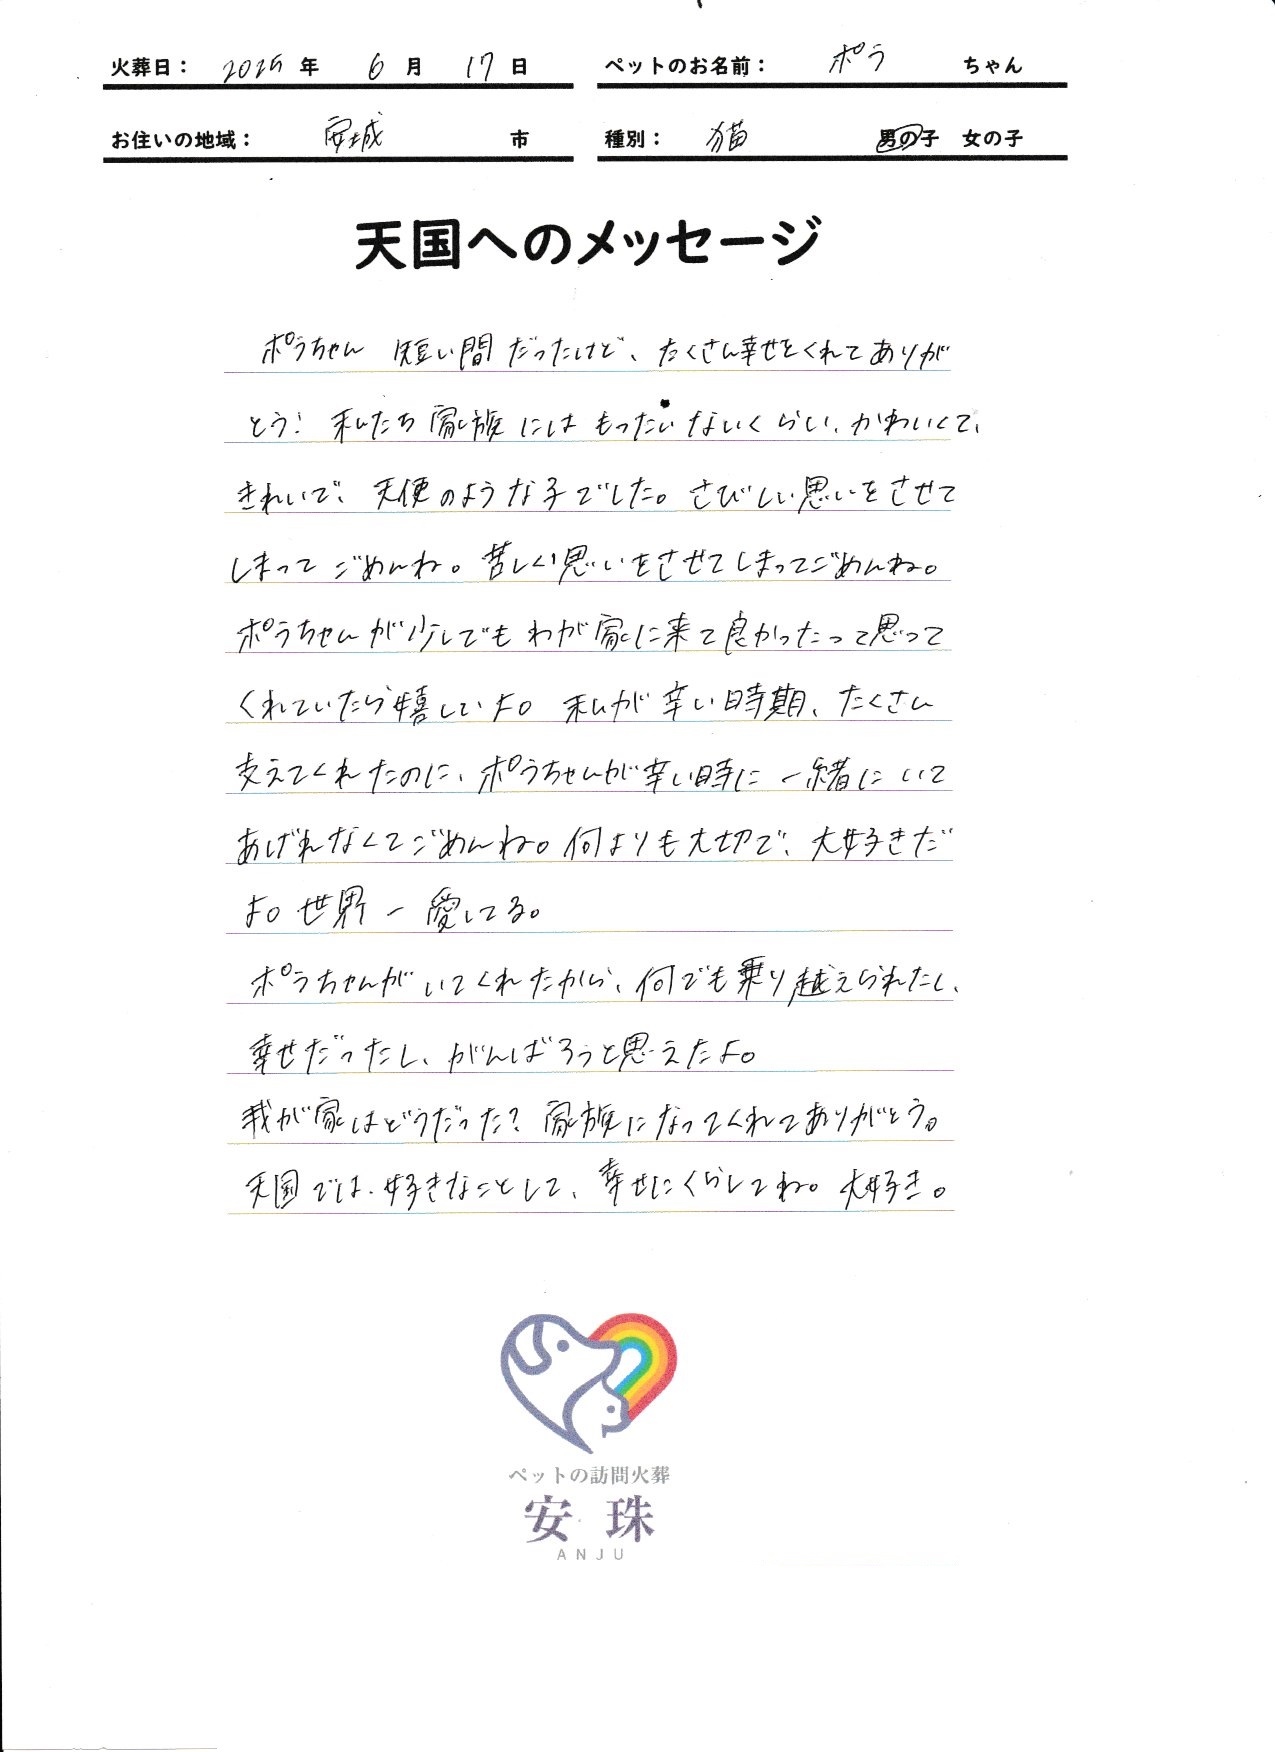 火葬日： 2025 年 6 月 17 日 ペットのお名前： ポラ ちゃん
お住いの地域： 安城 市 種別： 猫 男の子 女の子
天国へのメッセージ
ポラちゃん 短い間だったけど、たくさん幸せをくれてありが
とう！ 私たち家族にはもったいないくらい、かわいくて、
きれいで、天使のような子でした。さびしい思いをさせて
しまってごめんね。苦しい思いをさせてしまってごめんね。
ポラちゃんが少しでもわが家に来て良かったって思って
くれていたら嬉しいよ。 私が辛い時期、たくさん
支えてくれたのに、ポラちゃんが辛い時に一緒にいて
あげれなくてごめんね。何よりも大切で、大好きだ
よ。世界一愛してる。
ポラちゃんがいてくれたから、何でも乗り越えられたし、
幸せだったし、がんばろうと思えたよ。
我が家はどうだった？ 家族になってくれてありがとう。
天国では、好きなことして、幸せにくらしてね。大好き。
ペットの訪問火葬
安珠
ANJU